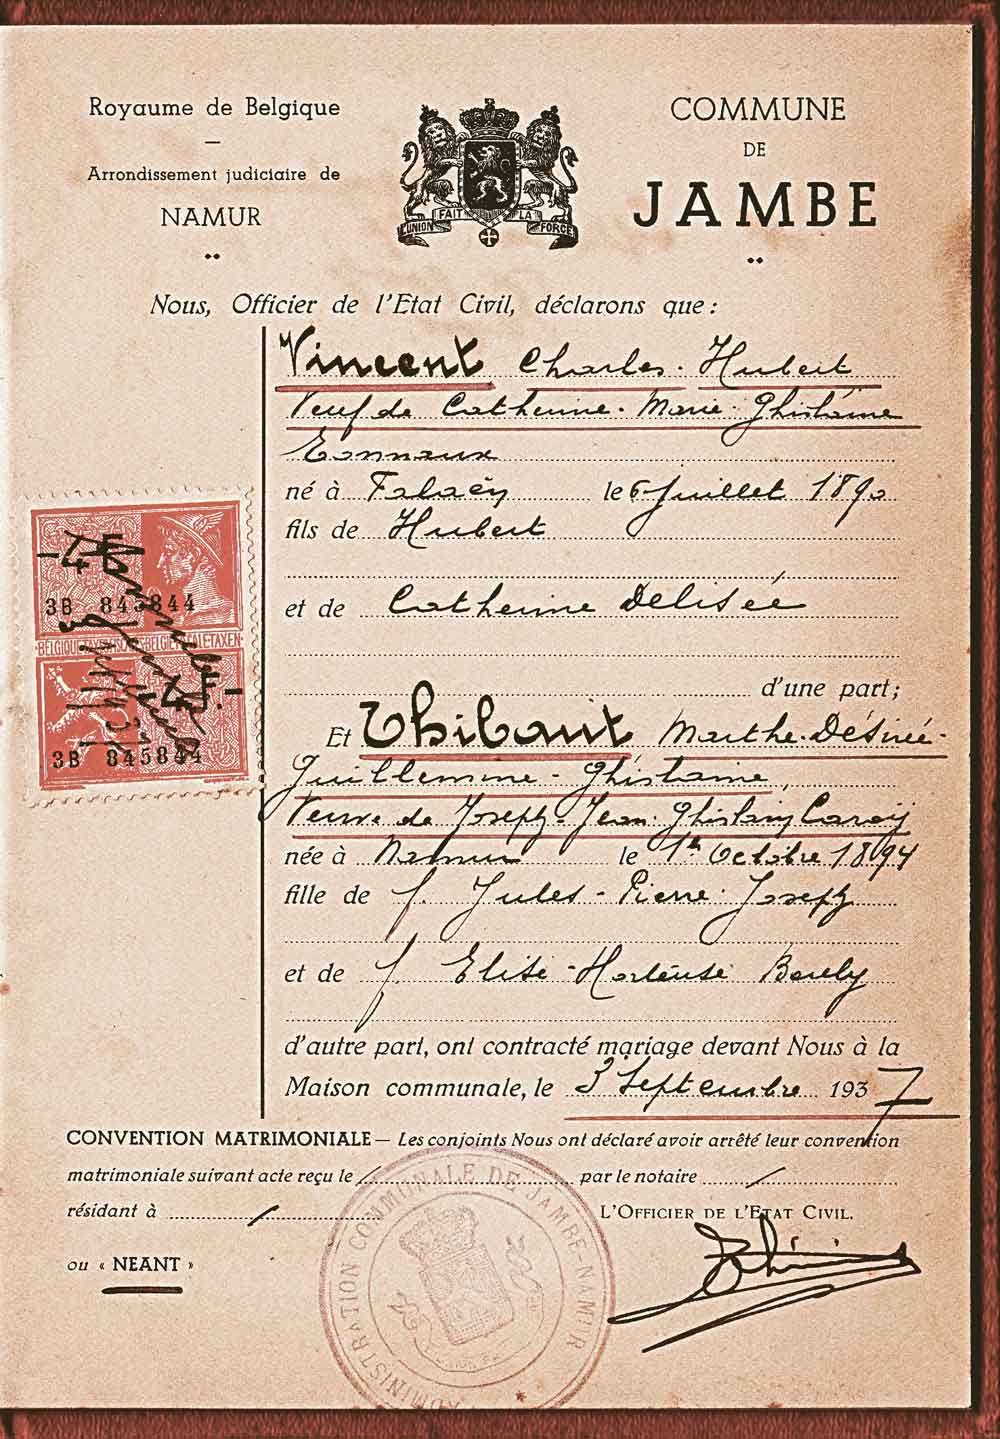 Royaume de Belgique
Arrondissement judiciaire de
NAMUR
UNION FAIT LA FORCE
COMMUNE
DE
JAMBE
Nous, Officier de l'Etat Civil, déclarons que :
Vincent Charles - Hubert
Veuf de Catherine - Marie - Ghislaine
né à Falaën le 6 Juillet 1890
fils de Hubert
et de Catherine Delisée
d'une part;
Et Thibaut Marthe - Désirée -
Guillemine - Ghislaine
Veuve de Joseph - Jean - Ghislain
née à Namur le 1er Octobre 1894
fille de f. Jules - Pierre - Joseph
et de f. Elise - Hortense
d'autre part, ont contracté mariage devant Nous à la
Maison communale, le 3 Septembre 1937
CONVENTION MATRIMONIALE — Les conjoints Nous ont déclaré avoir arrêté leur convention
matrimoniale suivant acte reçu le / par le notaire /
résidant à /
L'OFFICIER DE L'ETAT CIVIL.
ou « NEANT »
3B 845844
3B 845844
ADMINISTRATION COMMUNALE DE JAMBE-NAMUR